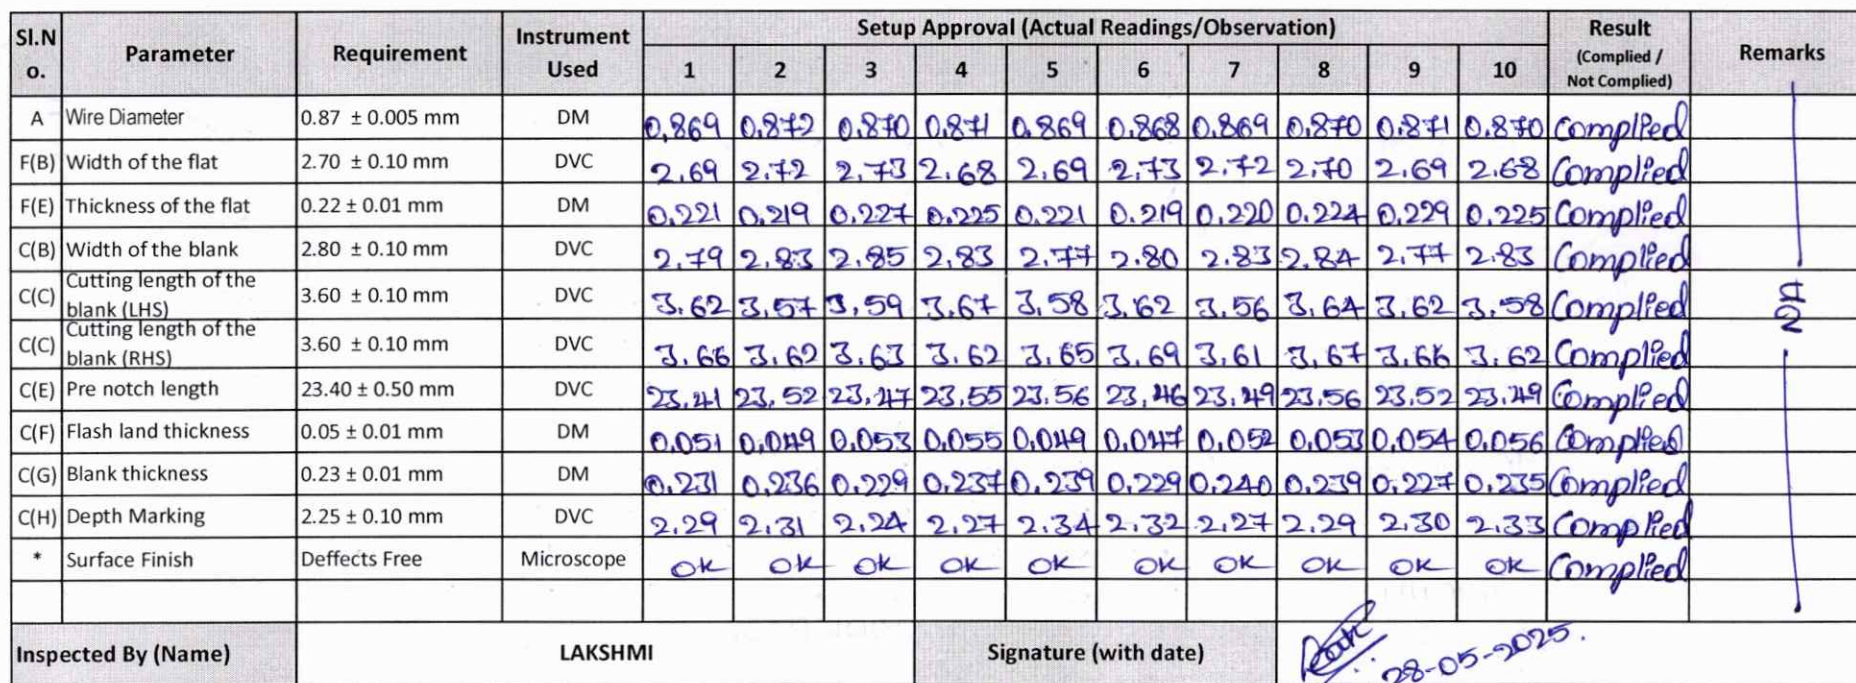 Sl.N
o. Parameter Requirement Instrument
Used Setup Approval (Actual Readings/Observation) Result
(Complied /
Not Complied) Remarks
1 2 3 4 5 6 7 8 9 10
A Wire Diameter 0.87 ± 0.005 mm DM 0.869 0.872 0.870 0.871 0.869 0.868 0.869 0.870 0.871 0.870 Complied
F(B) Width of the flat 2.70 ± 0.10 mm DVC 2.69 2.72 2.73 2.68 2.69 2.73 2.72 2.70 2.69 2.68 Complied
F(E) Thickness of the flat 0.22 ± 0.01 mm DM 0.221 0.219 0.227 0.225 0.221 0.219 0.220 0.224 0.229 0.225 Complied
C(B) Width of the blank 2.80 ± 0.10 mm DVC 2.79 2.83 2.85 2.83 2.77 2.80 2.83 2.84 2.77 2.83 Complied
C(C) Cutting length of the
blank (LHS) 3.60 ± 0.10 mm DVC 3.62 3.57 3.59 3.67 3.58 3.62 3.56 3.64 3.62 3.58 Complied
C(C) Cutting length of the
blank (RHS) 3.60 ± 0.10 mm DVC 3.66 3.62 3.63 3.62 3.65 3.69 3.61 3.67 3.66 3.62 Complied
C(E) Pre notch length 23.40 ± 0.50 mm DVC 23.41 23.52 23.47 23.55 23.56 23.46 23.49 23.56 23.52 23.49 Complied
C(F) Flash land thickness 0.05 ± 0.01 mm DM 0.051 0.049 0.053 0.055 0.049 0.047 0.052 0.053 0.054 0.056 Complied
C(G) Blank thickness 0.23 ± 0.01 mm DM 0.231 0.236 0.229 0.237 0.239 0.229 0.240 0.239 0.227 0.235 Complied
C(H) Depth Marking 2.25 ± 0.10 mm DVC 2.29 2.31 2.24 2.27 2.34 2.32 2.27 2.29 2.30 2.33 Complied
* Surface Finish Deffects Free Microscope OK OK OK OK OK OK OK OK OK OK Complied
Inspected By (Name) LAKSHMI Signature (with date) 28-05-2025.